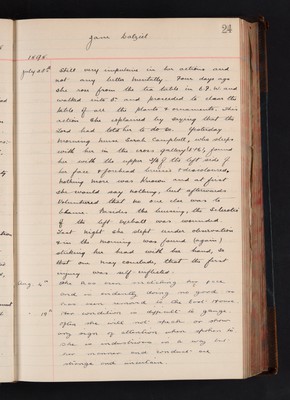 Jane Dalziel
24
1896
July 28th Still very impulsive in her actions and
not any better mentally. Four days ago
she rose from the tea table in and
walked into and proceeded to clear the
table of all the plants & ornaments. This
action she explained by saying that the
Lord had told her to do so. Yesterday
morning nurse Sarah Campbell, who sleeps
with her in the cross gallery found
her with the upper of the left side of
her face & forehead bruised & discoloured,
nothing more was known and at first
she would say nothing, but afterwards
volunteered that no one else was to
blame. Besides the bruising, the sclerotic
of the left eyeball was wounded.
Last night she slept under observation
& in the morning was found (again)
striking her head with her hand, so
that one may conclude, that the first
injury was self inflicted.
She has been
and is evidently doing no good so
has been moved to the
Her condition is difficult to gauge.
often she will not speak or show
any sign of attention when spoken to.
She is industrious in a way but
her manner and conduct are
strange and uncertain.